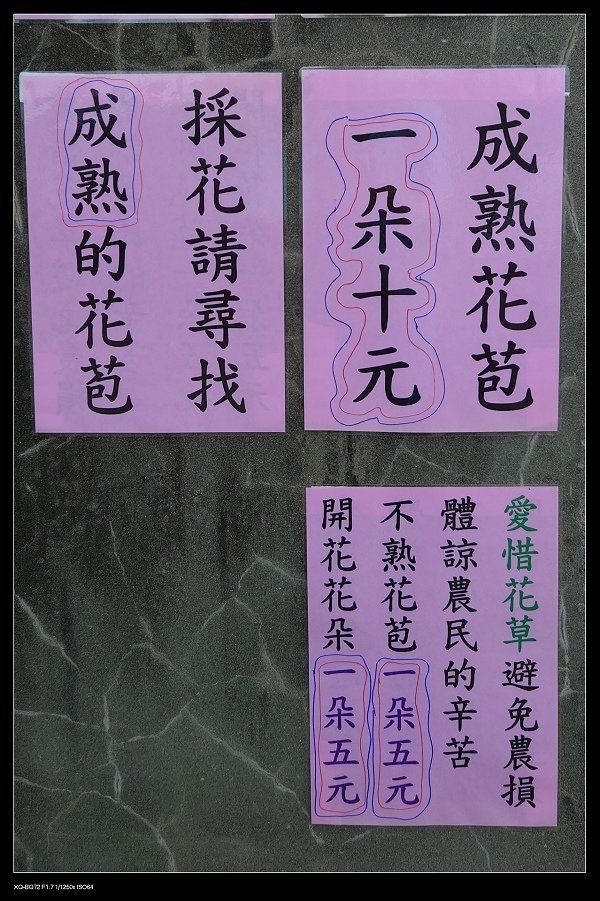 成熟花苞
一朵十元
採花請尋找
成熟的花苞
愛惜花草避免農損
體諒農民的辛苦
不熟花苞一朵五元
開花花朵一朵五元
XQ-BQ72 F1.7 1/1250s ISO64